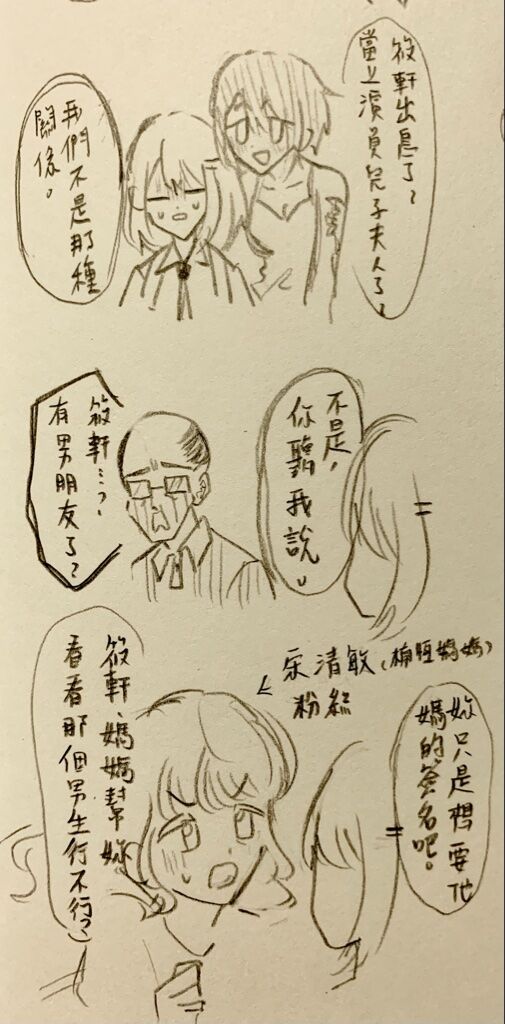 筱軒出息了，
當立演員兒子夫人了，
我們不是那種
關係。
不是，
你聽我說，
筱軒…？
有男朋友了？
宋清敏（楠恆媽媽）
粉絲
妳只是想要他
媽的簽名吧。
筱軒，媽媽幫妳
看看那個男生行不行？